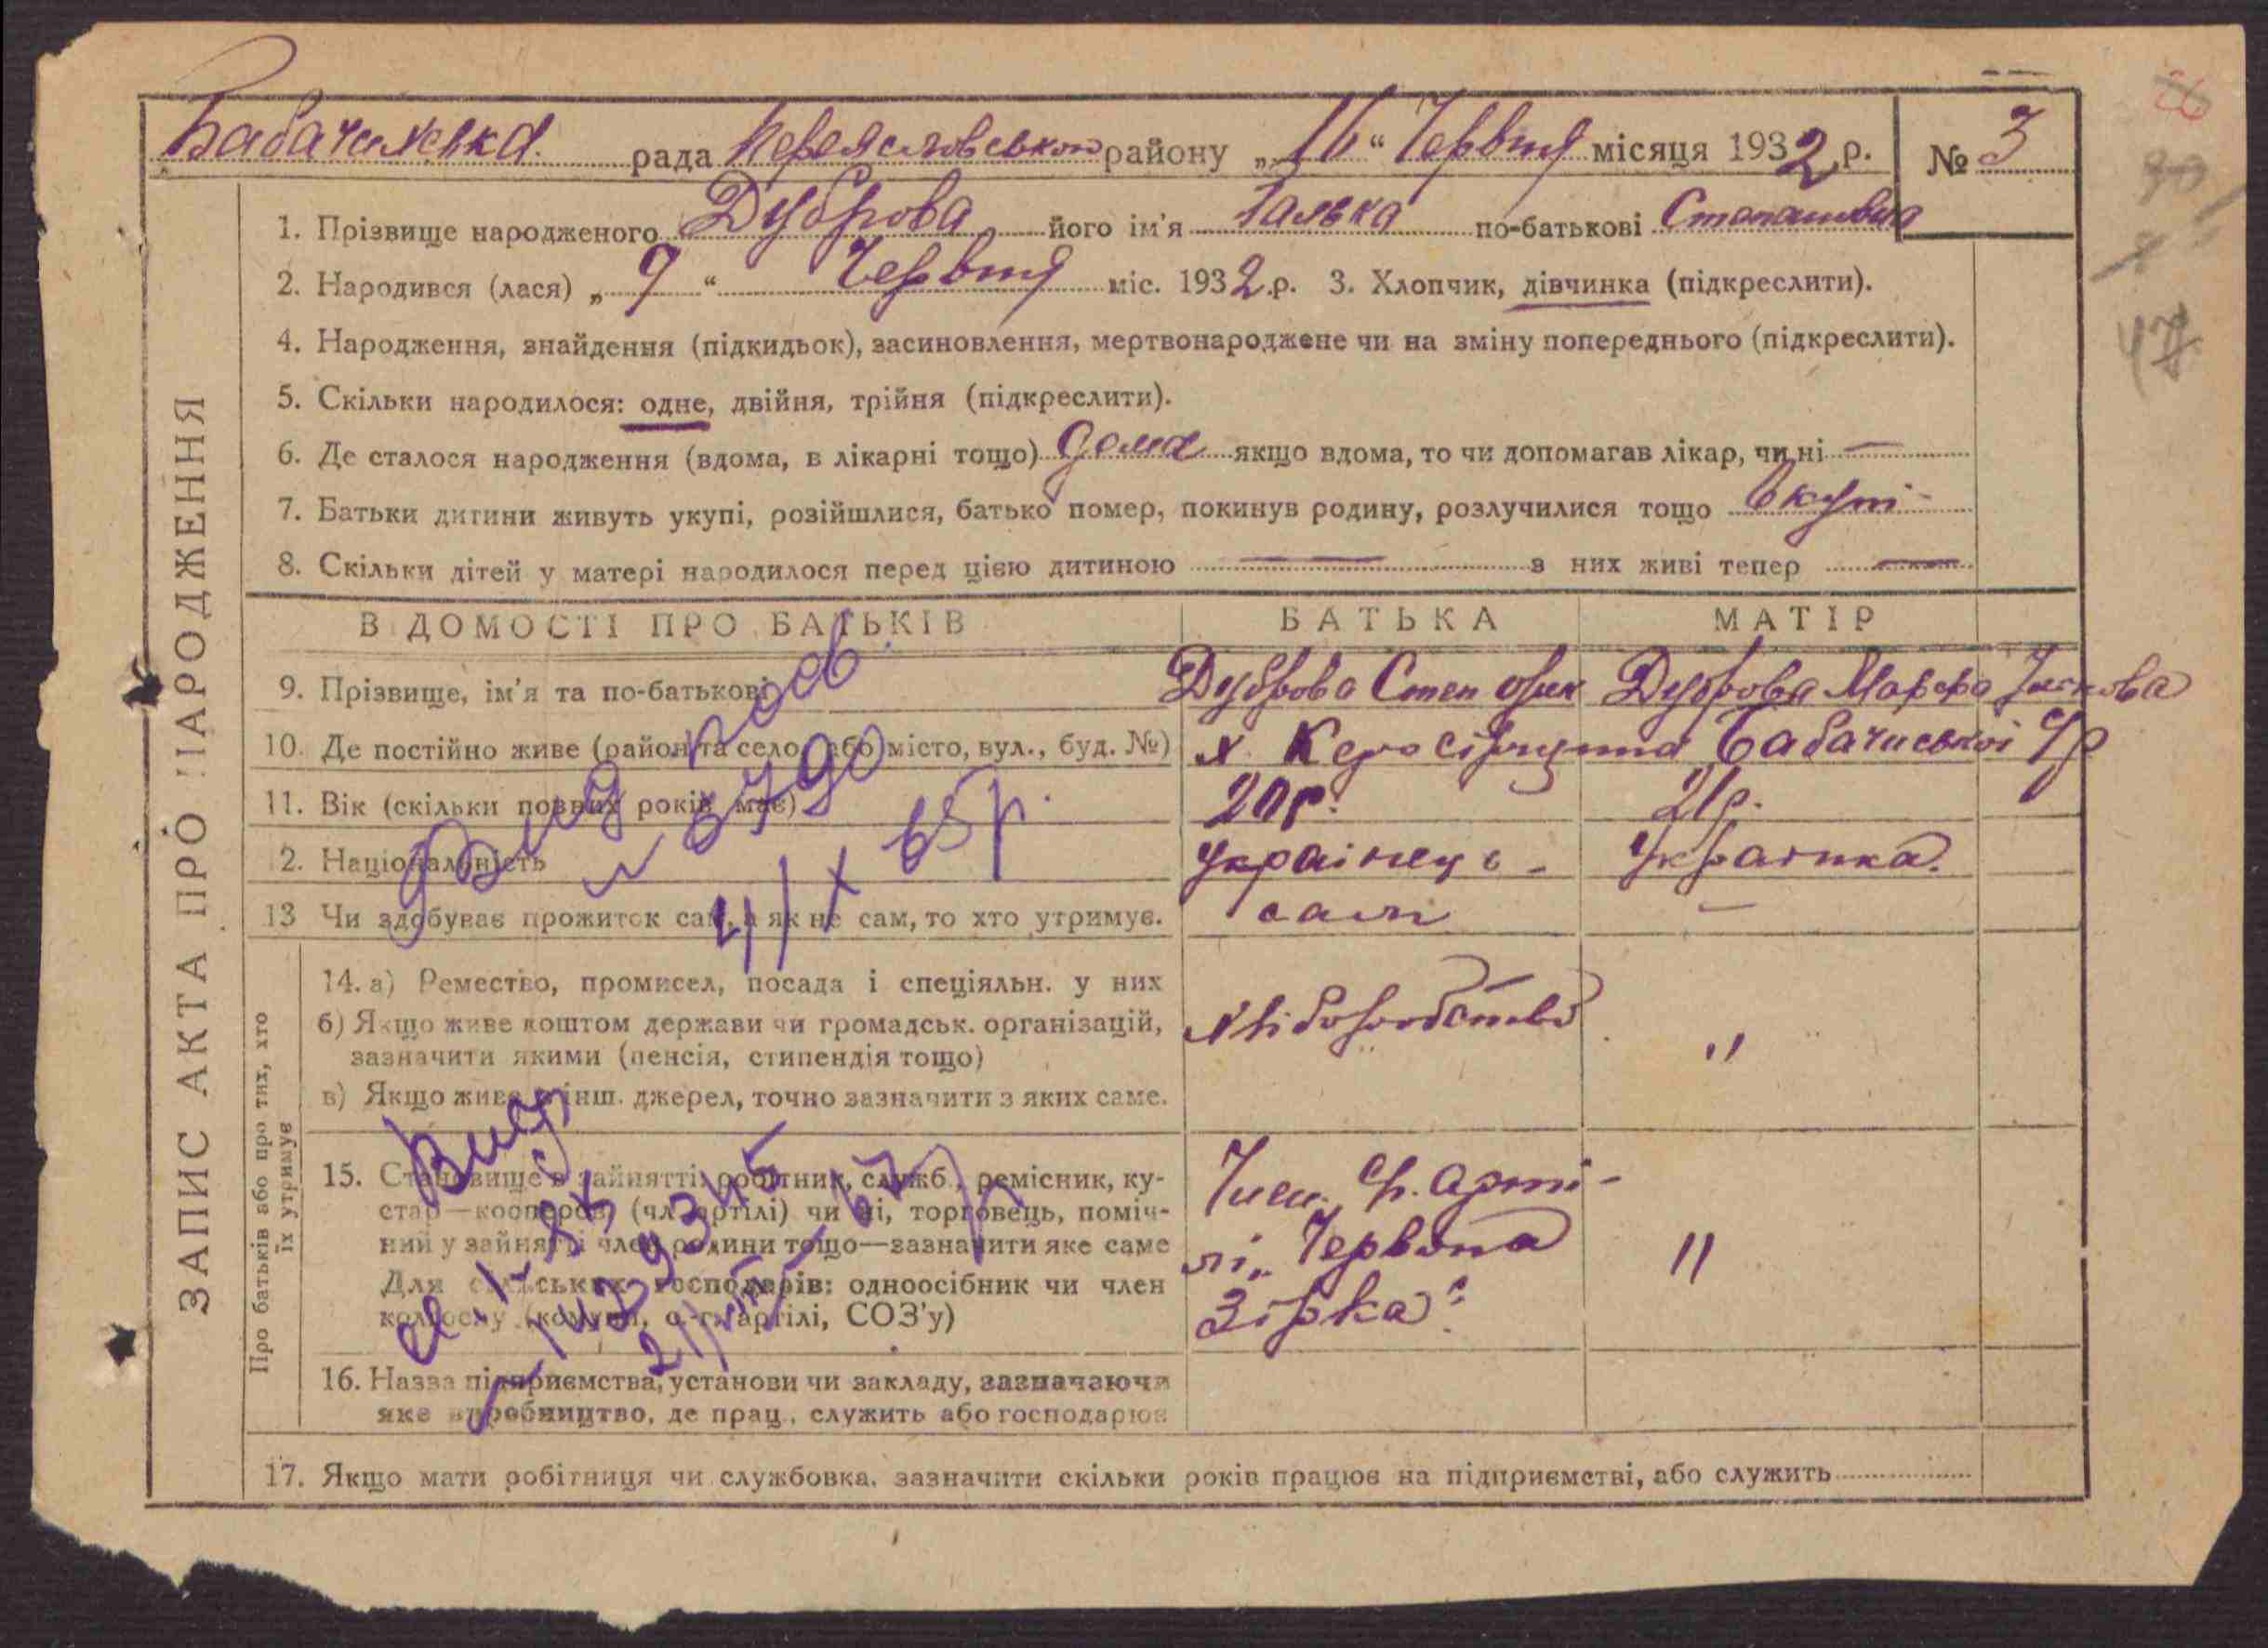 Бабачихська рада Переяславськой району „16“ Червня місяця 1932 р. № 3
1. Прізвище народженого Дуброва його ім'я Галька по-батькові
2. Народився (лася) „9“ Червня міс. 1932 р. 3. Хлопчик, дівчинка (підкреслити).
4. Народження, знайдення (підкидьок), засиновлення, мертвонароджене чи на зміну попереднього (підкреслити).
5. Скільки народилося: одне, двійня, трійня (підкреслити).
6. Де сталося народження (вдома, в лікарні тощо) дома якщо вдома, то чи допомагав лікар, чи ні —
7. Батьки дитини живуть укупі, розійшлися, батько помер, покинув родину, розлучилися тощо вкупі
8. Скільки дітей у матері народилося перед цією дитиною — з них живі тепер —
ЗАПИС АКТА ПРО НАРОДЖЕННЯ
ВІДОМОСТІ ПРО БАТЬКІВ БАТЬКА МАТІР
9. Прізвище, ім'я та по-батькові Дуброва Степ Дуброва Марфа
10. Де постійно живе (район та село, або місто, вул., буд. №) х.
11. Вік (скільки повних років має) 20р. 21р.
2. Національність Українець - Українка.
13 Чи здобуває прожиток сам, а як не сам, то хто утримує. сам —
Про батьків або про тих, хто
їх утримує
14. а) Ремество, промисел, посада і спеціяльн. у них
б) Якщо живе коштом держави чи громадськ. організацій, хліборобство "
зазначити якими (пенсія, стипендія тощо)
в) Якщо живе з інш. джерел, точно зазначити з яких саме.
15. Становище в зайнятті: робітник, служб., ремісник, ку-
стар—коопоров. (чл. артілі) чи ні, торговець, поміч-
ний у зайнятті член родини тощо—зазначити яке саме
Для сільських господарів: одноосібник чи член
колгоспу (комуни, с.-г. артілі, СОЗ'у)
арті-
лі „Червона "
Зірка“
16. Назва підприємства, установи чи закладу, зазначаючи
яке виробництво, де прац., служить або господарює
17. Якщо мати робітниця чи службовка, зазначити скільки років працює на підприємстві, або служить
Вид
47